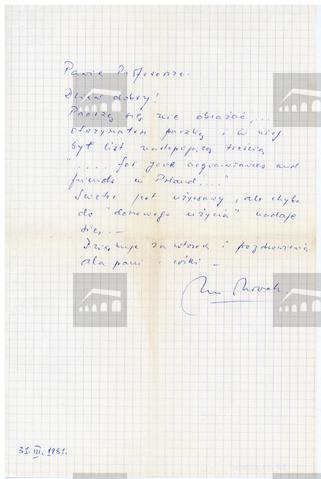 Panie Profesorze.
Dzień dobry!
Proszę się nie obrażać,...
otrzymałem paczkę i w niej
był list następującą treścią
"..... for your acquaintances and
friends in Poland...."
Sweter jest używany, ale chyba
do "domowego użycia" nadaje
się. —
Dziękuję za wtorek i pozdrowienia
dla pani i córki —
Nowak
31. III. 1981.